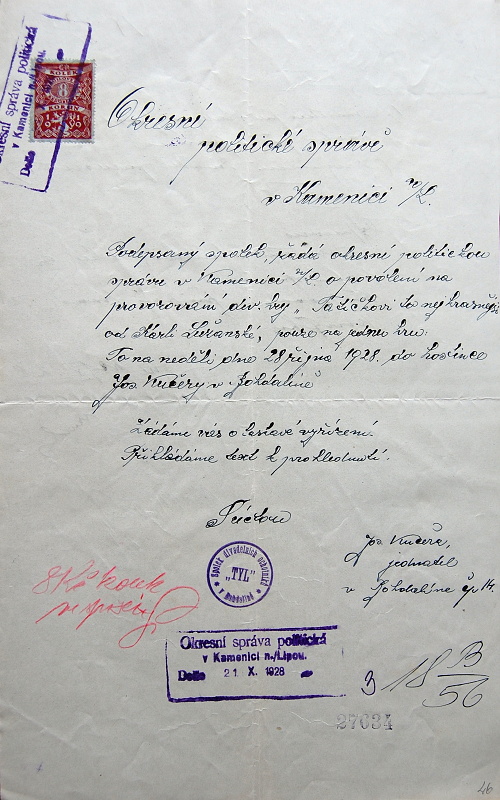 Okresní správa politická
v Kamenici n./Lipou.
Došlo
8
KORUN
Okresní
politické správě
v Kamenici n/L.
Podepsaný spolek, žádá okresní politickou
správu v Kamenici n/L. o povolení na
provozování div. hry „Tatíčkovi to nejkrásnější
od Karli Lužanské, pouze na jednu hru.
To na neděli dne 28 října 1928. do hostince
Jos Kučery v Bohdalíně
Žádáme vás o laskavé vyřízení.
Přikládáme text k prohlednutí.
S úctou
Jos Kučera,
jednatel
v Bohdalíně čp 14.
Spolek divadelních ochotníků
„TYL"
v Bohdalíně
8 Kč kolek
Okresní správa politická
v Kamenici n./Lipou.
Došlo 21 X. 1928
18 B
56
27634
46